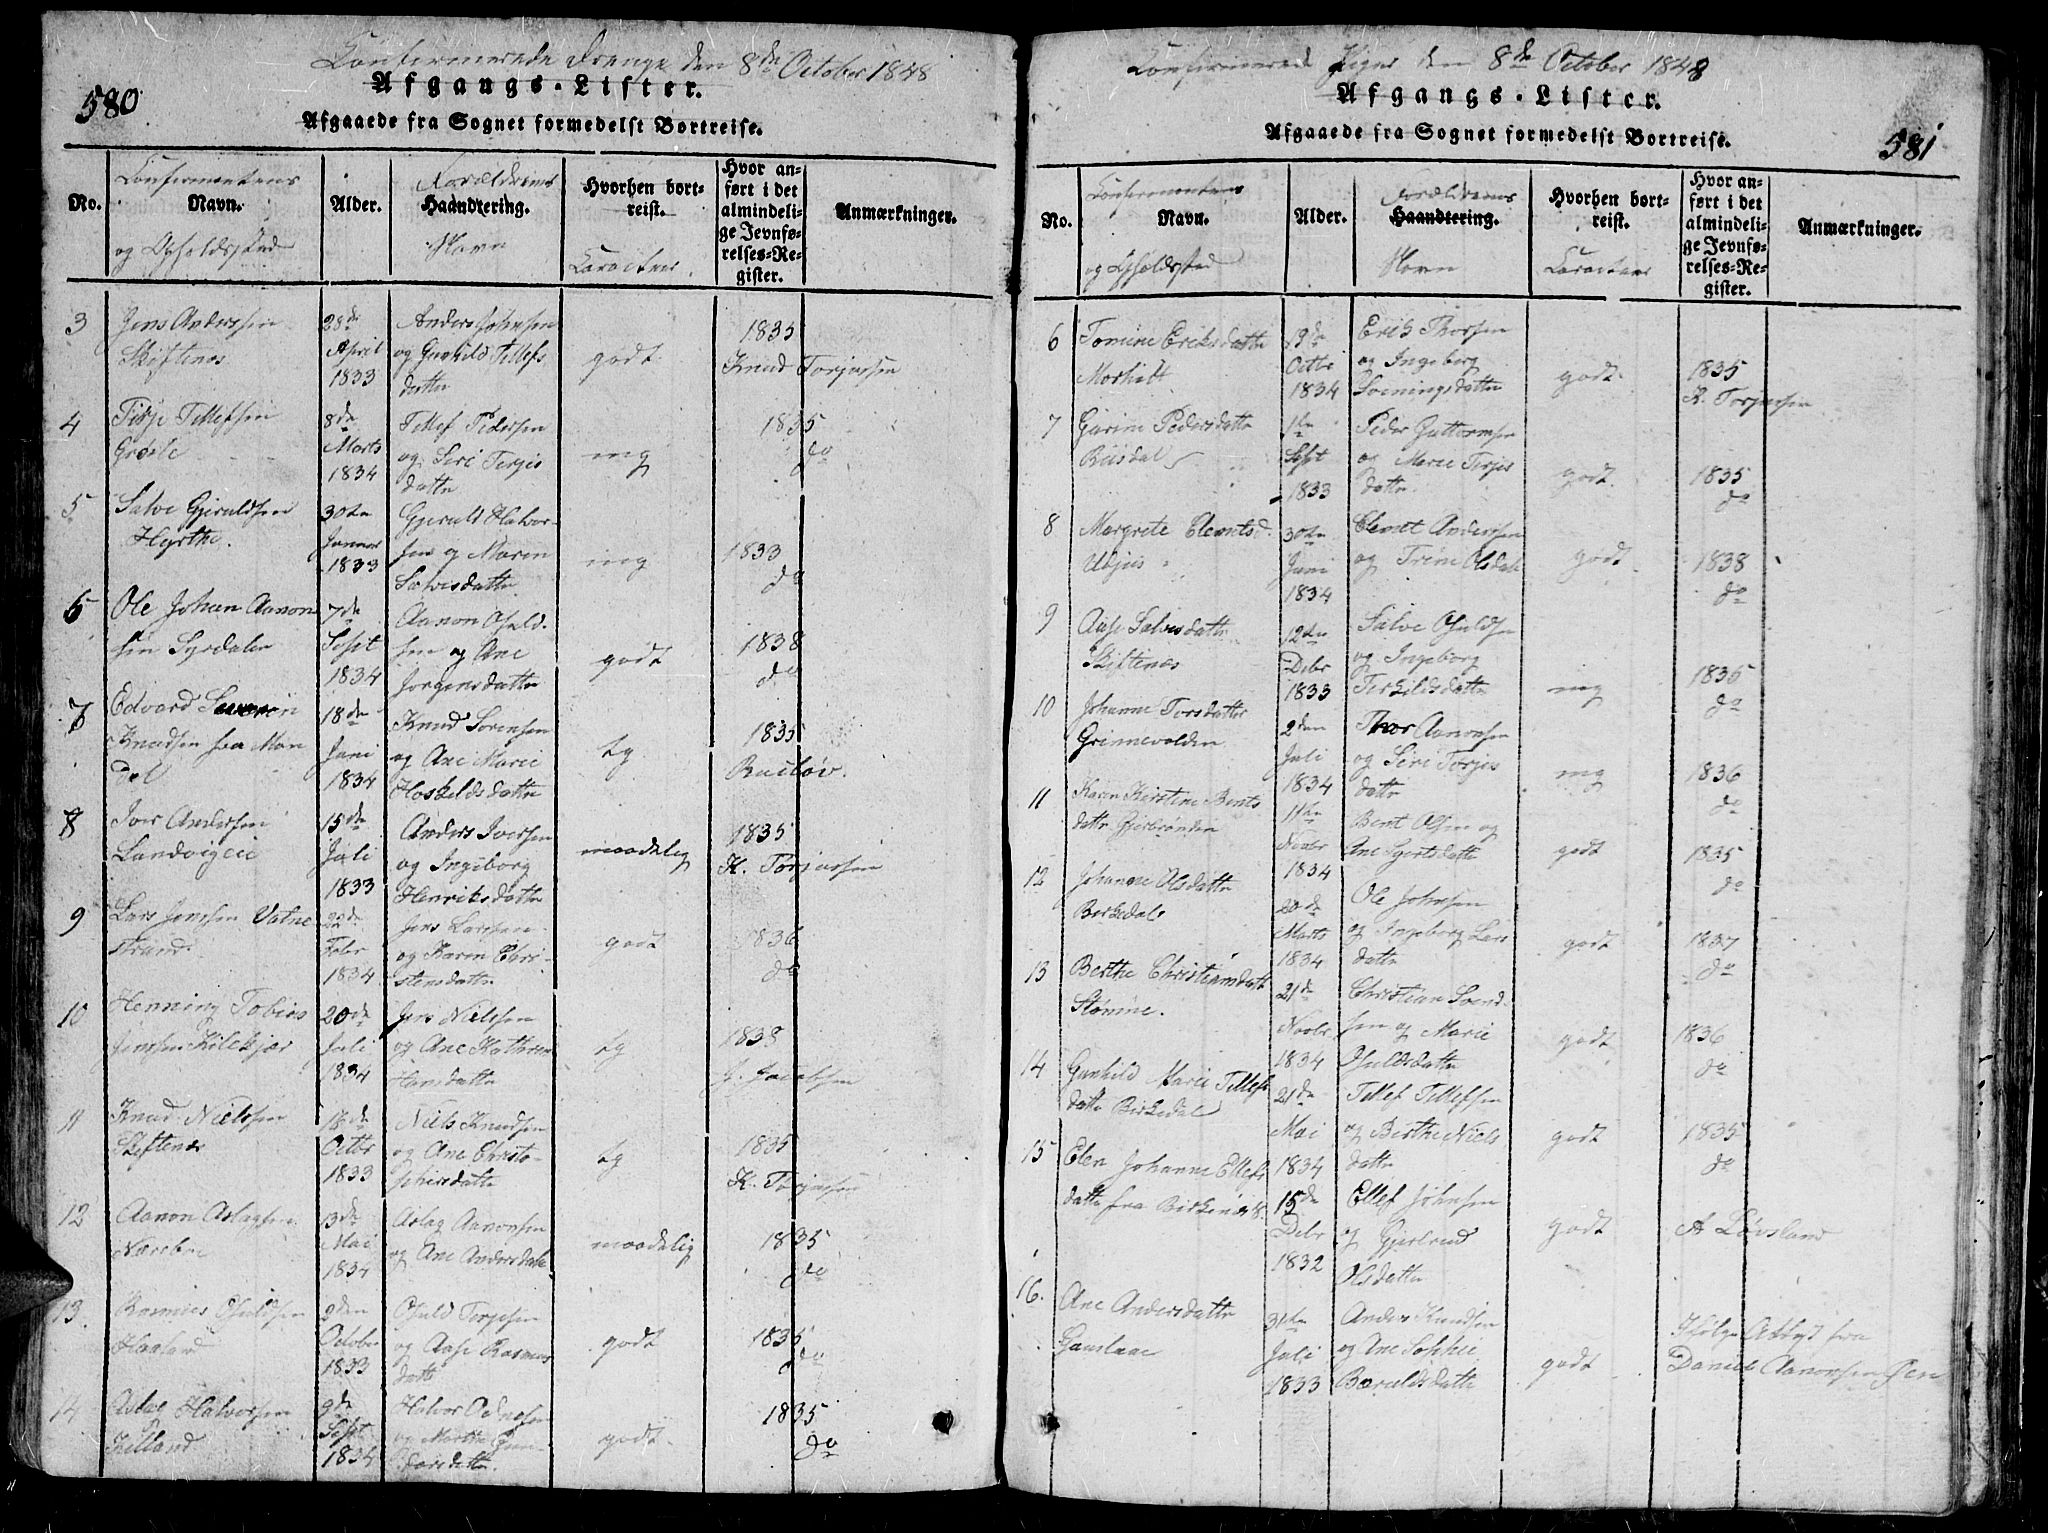 580
Confirmerede Drenge den 8de October 1848
Afgangs-Lister.
Afgaaede fra Sognet formedelst Bortreise.
No.
Confirmentens
Navn.
og Opholdssted
Alder.
Forældrenes
Haandtering.
Navn
Hvorhen bort-
reist.
Caracteer
Hvor an-
ført i det
almindeli-
ge Jevnfø-
relses-Re-
gister.
Anmærkninger.
3 Jens Anderssen
Skiftenes
28de
April
1833
Anders Johnsen
og Gunhild Tellefs
datter
godt
1835
Knud Torjussen
4 Terje Tellefsen
8de
Marts
1834
Tellef Pedersen
og Siri Terjes
datter
mg
1835
do
5 Salve Gjeruldsen
Hyrthe.
30te
Januar
1833
Gjeruld Halvor-
sen og Maren
Salvesdatter
mg
1833
do
6 Ole Johan Aanon
sen Syrdalen
7de
Sept
1834
Aanon Osuld-
sen og Ane
Jørgensdatter
godt
1838
do
7 Edvard Severin
Knudsen fra Man
dal
18de
Juni
1834
Knud Sørensen
og Ane Marie
Hoskeldsdatter
tg
1835
8 Iver Andersen
Landvigeie
15de
Juli
1833
Anders Iversen
og Ingeborg
Henriksdatter
maadelig
1835
K. Torjussen
9 Lars Jensen Vatne
strand
22de
Febr
1834
Jens Larssen
og Karen Chri-
stensdatter
godt
1836
do
10 Henning Tobias
Jenssen Kilekjær
20de
Juli
1834
Jens Nielssen
og Ane Kathrin
Hansdatter
tg
1838
J. Jacobsen
11 Knud Nielssen
Skiftenes
18de
Octbr
1833
Niels Knudsen
og Ane Christo-
phersdatter
tg
1835
K. Torjussen
12 Aanon Aslagsen
Nærebø
13de
Mai
1834
Aslag Aanonsen
og Ane Andersdatter
maadelig
1835
do
13. Rasmus Osuldsen
Haaland
2den
October
1833
Osuld Terjesen
og Aase Rasmus
datter
godt
1835
do
14 Aslac Halvorsen
9de
Sept
1834
Halvor Odnesen
og Marthe Gun-
datter
godt
1835
do
581
Confirmerede Piger den 8de October 1848
Afgangs-Lister.
Afgaaede fra Sognet formedelst Bortreise.
No.
Confirmentens
Navn.
og Opholdssted
Alder.
Forældrenes
Haandtering.
Navn
Hvorhen bort-
reist.
Caracteer
Hvor an-
ført i det
almindeli-
ge Jevnfø-
relses-Re-
gister.
Anmærkninger.
6 Tomine Eriksdatter
Morholt
19de
Octbr
1834
Erik Thorsen
og Ingeborg
Sveningsdatter
godt
1835
K. Torjussen
7 Gurine Pedersdatter
Riisdal
1ste
Sept
1833
Peder Guttormsen
og Marie Terjes
datter
godt
1835
do
8 Margrete Clemtsd.
30te
Juni
1834
Clemet Anderssen
og Trine Olsdatter
godt
1838
do
9 Aase Salvesdatter
Skiftenes
12te
Debr
1833
Salve Osuldsen
og Ingeborg
Terkildsdatter
mg
1835
do
10 Johanne Torsdatter
Grinnevolden
2den
Juli
1834
Thor Aanonsen
og Siri Torjes
datter
mg
1836
do
11 Karen Kirstine Bents
datter Gjerbrønden
11te
Novbr
1834
Bent Olsen og
Ane Sjertsdatter
godt
1835
do
12 Johanne Olsdatter
Birkedal
20de
Marts
1834
Ole Johnsen
og Ingeborg Lars
datter
godt
1837
do
13 Berthe Christiansdatt
Stømne.
21de
Novbr
1834
Christian Svend-
sen og Marie
Osuldsdatter
godt
1836
do
14 Gunhild Marie Tellefs
datter Birkedal
21de
Mai
1834
Tellef Tellefsen
og Berthe Niels
datter
godt
1835
do
15 Elen Johanne Ellefs
datter fra Birkenæs
15de
Debr
1832
Ellef Johnsen
og Gjertrud
Olsdatter
godt
A Løvsland
16. Ane Andersdatter
31te
Juli
1833
Anders Knudsen
og Ane Sophie
Baruldsdatter
godt
Ifølge Attest fra
Daniel Aanonsen Øen